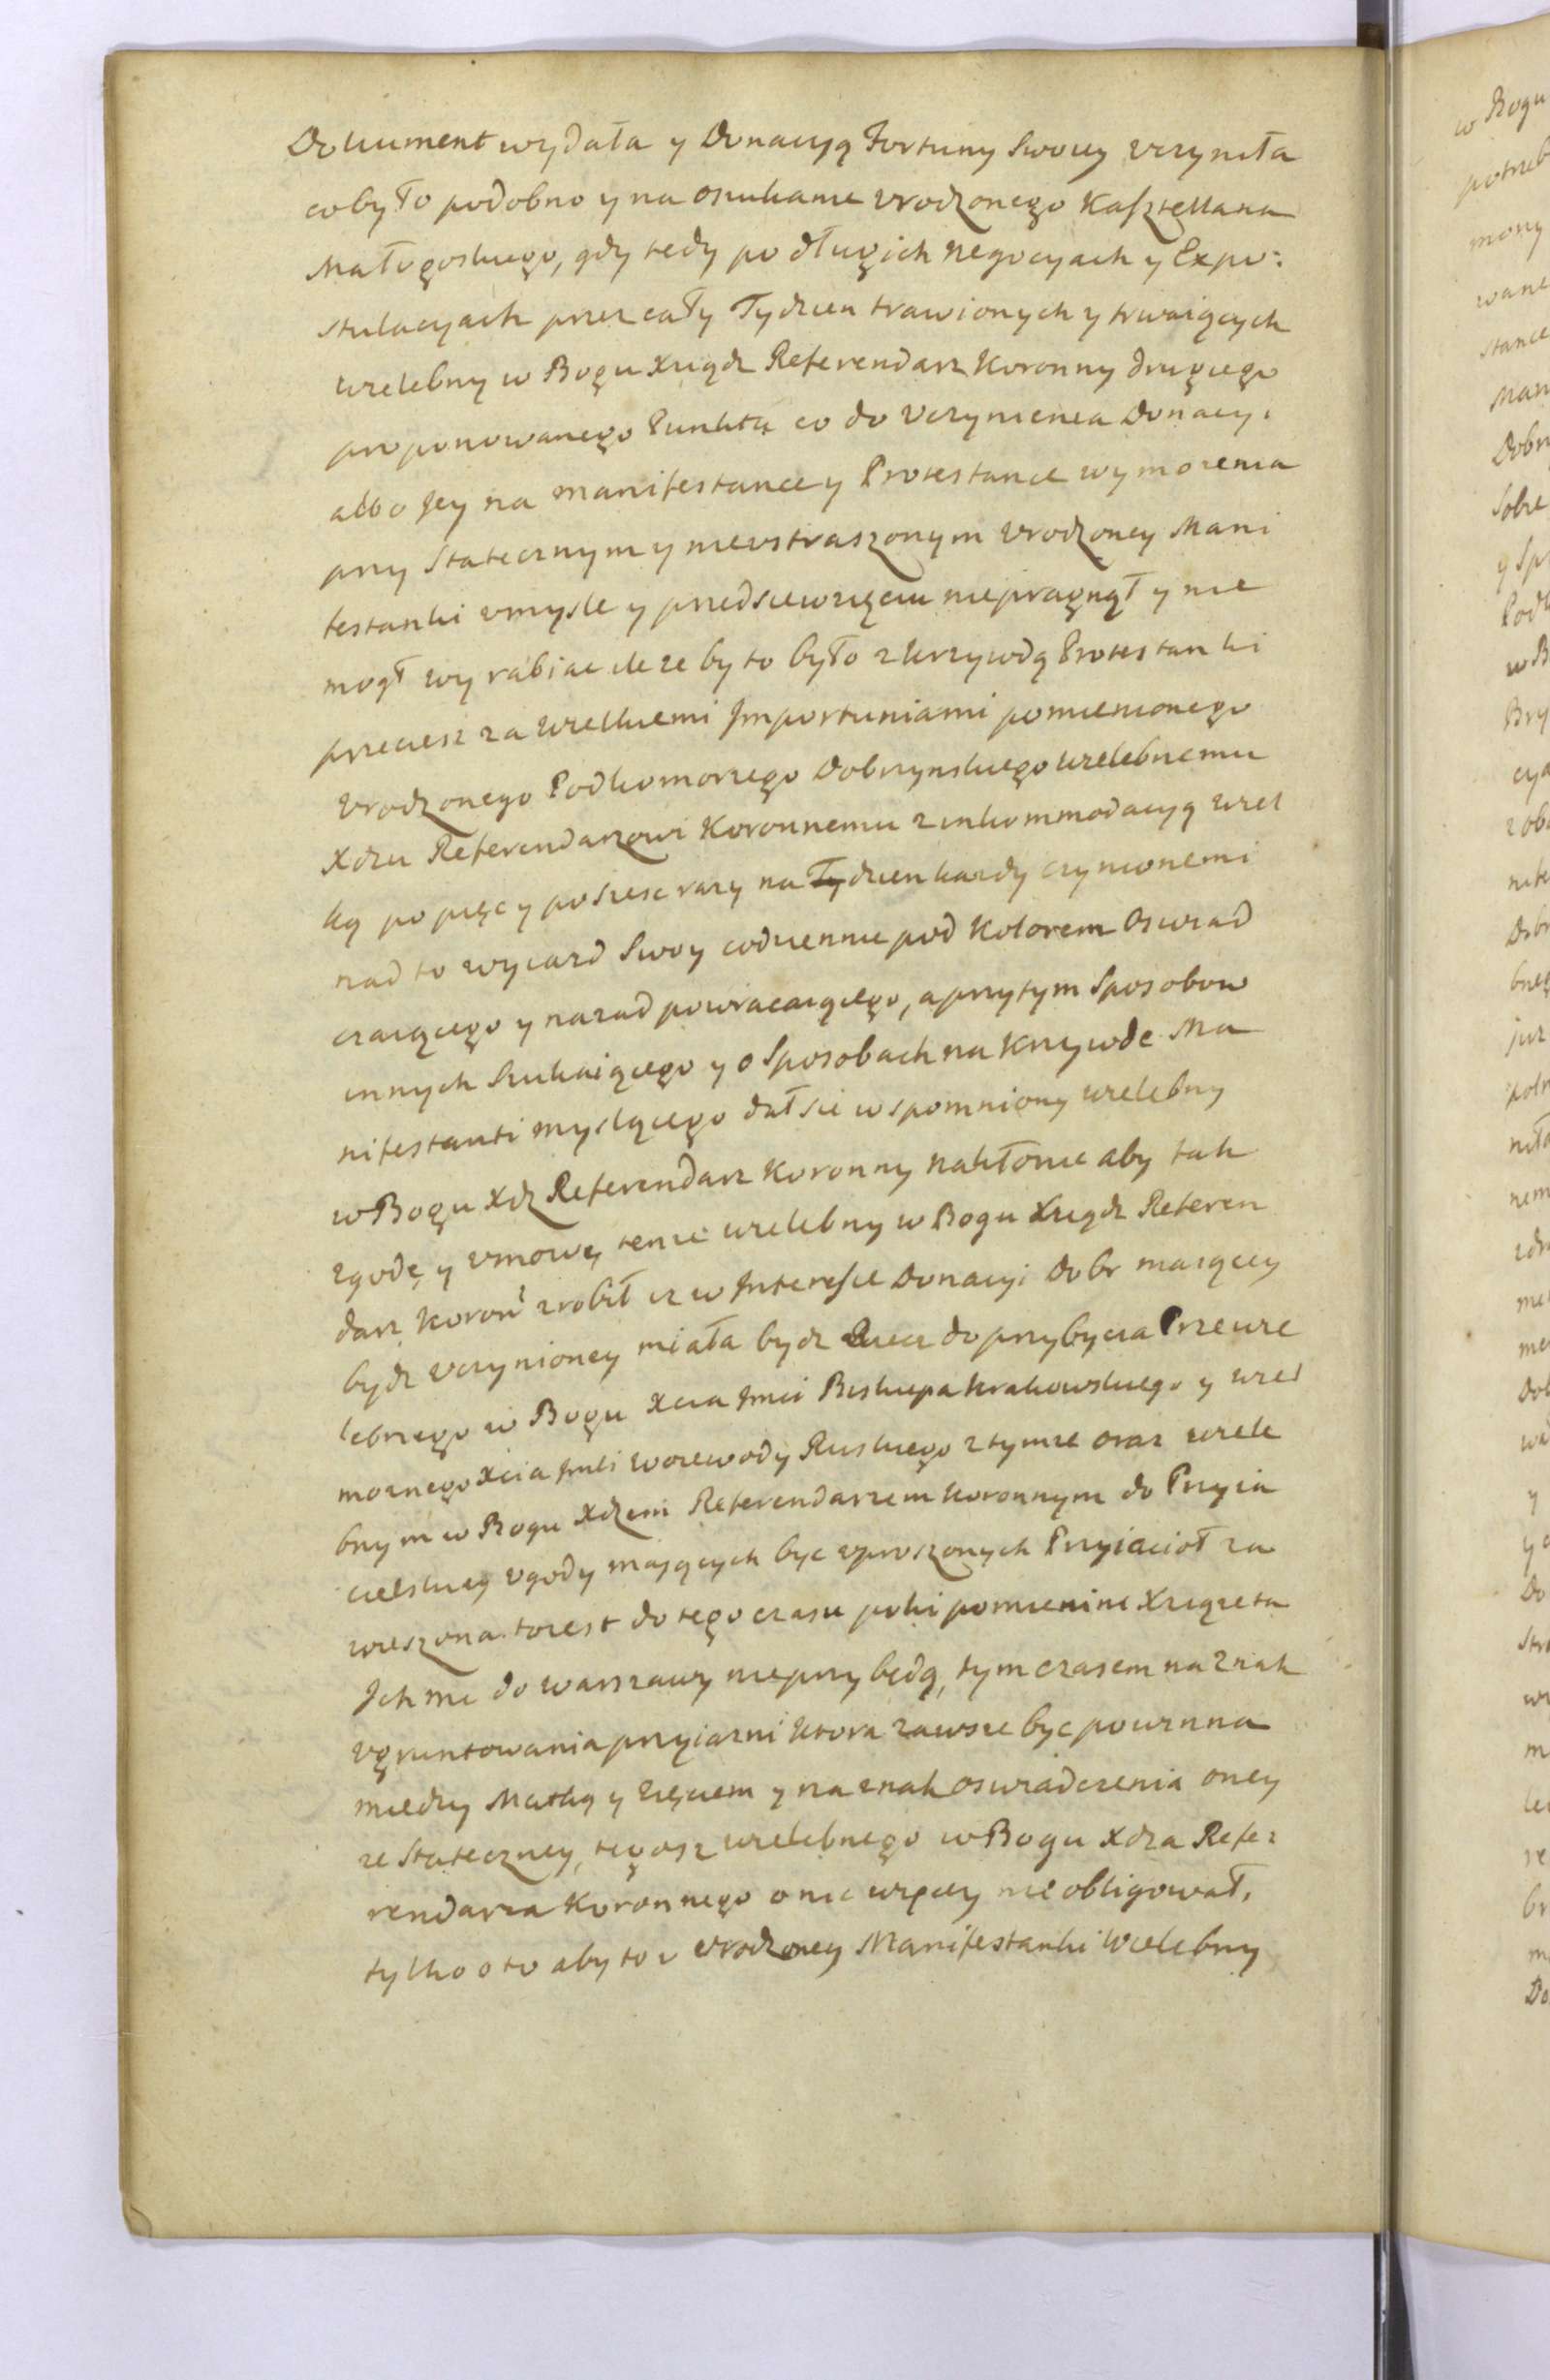 Dokument wydała y Donacyą Fortuny Swoiey vczyniła
coby to podobno y na oszukanie vrodzonego Kasztellana
Małogoskiego, gdy tedy po długich negocyach y Expo:
stulacyach przez cały Tydzien trawionych y trwaiących
wielebny w Bogu Xiądz Referendarz Koronny drugiego
proponowanego Punktu co do vczynienia Donacyi
albo jey na manifestance y Protestance wymożenia
przy Statecznym y nieustraszonym vrodzoney Mani
festanki vmysle y przedsiewzięciu niepragnął y nie
mogł wyrabiac ileze by to było z krzywdą Protestanki
przeciesz za wielkiemi Jmportuniami pomienionego
vrodzonego Podkomorzego Dobrzynskiego wielebnemu
Xdzu Referendarzowi Koronnemu z inkommodacyą wiel
ką po pięc y po szesc razy na Tydzien kazdy czynionemi
nad to wyiazd Swoy codziennie pod Kolorem Oswiad
czaiącego y nazad powracaiącego, a przytym Sposobow
innych Szukaiącego y o Sposobach na Krzywde Ma
nifestanti myslącego dał sie wspomniony wielebny
w Bogu Xdz Referendarz Koronny nakłonic aby tak
zgodę y vmowę tenze wielebny w Bogu Xiądz Referen
darz Koroñ zrobił iz w Jnteresie Donacyi Dobr maiącey
bydz vczynioney miała bydz do przybycia Przewie
lebnego w Bogu Xcia Jmci Biskupa Krakowskiego y wiel
moznego Xcia Jmci Woiewody Ruskiego z tymze oraz wiele
bnym w Bogu Xdzem Referendarzem Koronnym do Przyia
cielskiey vgody mających byc vproszonych Przyiacioł za
wieszona. to iest do tego czasu poki pomienini Xiązęta
Jchmc do Warszawy nieprzybędą, tym czasem na Znak
vgruntowania przyiazni ktora zawsze byc powinna
miedzy Matką y zięciem y na znak oswiadczenia oney
ze Stateczney, tegosz wielebnego w Bogu Xdza Refe:
rendarza Koronnego o nic więcey nie obligował,
tylko o to aby to v vrodzoney Manifestanki Wielebny